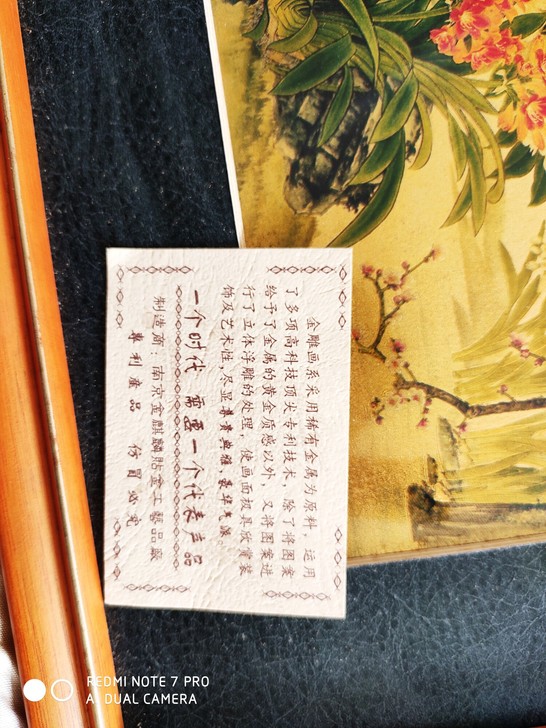 金雕画系采用稀有金属为原料，运用
了多项高科技顶尖专利技术，除了将图案
给予了金属的黄金质感以外，又将图案进
行了立体浮雕的处理，使画面极具欣赏装
饰及艺术性，尽显尊贵典雅，豪华气派。
一个时代 需要一个代表产品
制造商：南京金麒麟贴金工艺品厰
专利産品 仿冒必究
REDMI NOTE 7 PRO
AI DUAL CAMERA